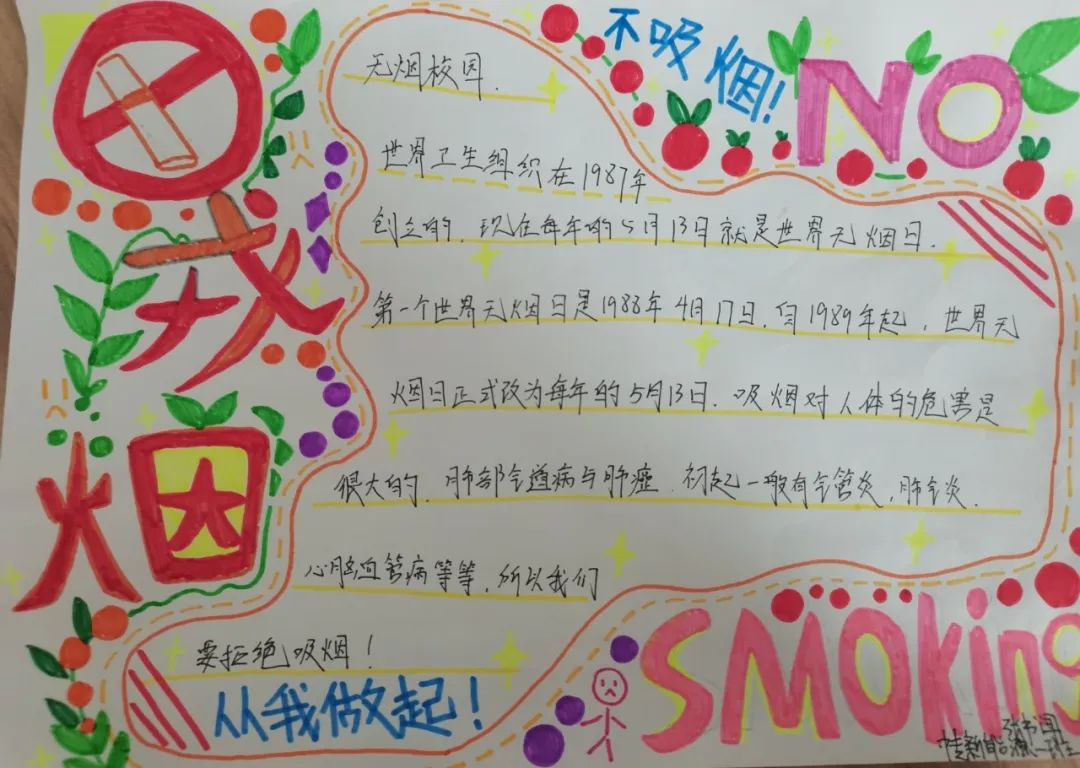 戒
烟
不吸烟!
NO
无烟校园.
世界卫生组织在1987年
创立的,现在每年的5月13日就是世界无烟日.
第一个世界无烟日是1988年4月17日.自1989年起,世界无
烟日正式改为每年的5月13日.吸烟对人体的危害是
很大的.肺部气道病与肺癌.初起一般有气管炎,肺气炎.
心脑血管病等等,所以我们
要拒绝吸烟!
从我做起!
SMOKing